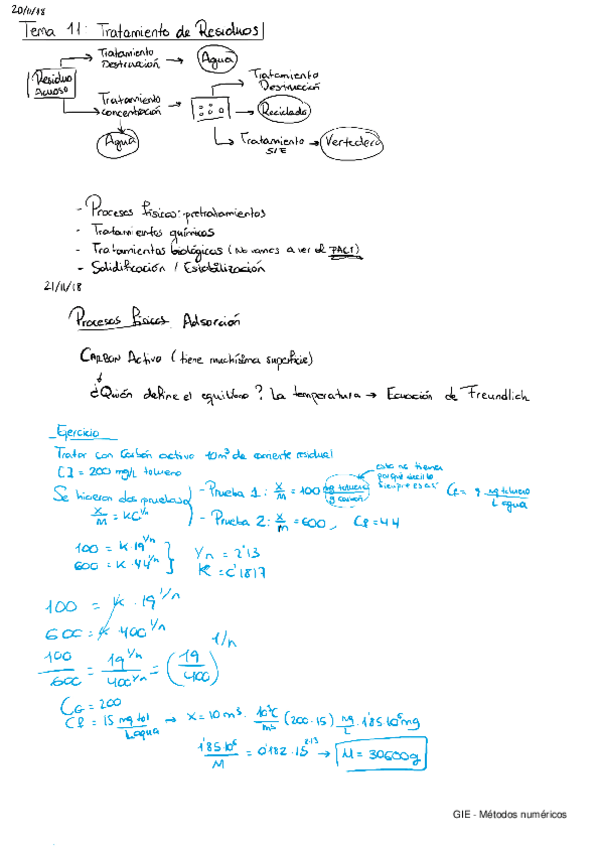 20/11/18
Tema 11: Tratamiento de Residuos
Residuo acuoso
Tratamiento Destrucción → Agua
Tratamiento concentración →
Agua
Tratamiento Destrucción
Reciclado
Tratamiento S/E → Vertedero
- Procesos físicos: pretratamientos
- Tratamientos químicos
- Tratamientos biológicos (No vamos a ver el PACT)
- Solidificación / Estabilización
21/11/18
Procesos físicos Adsorción
CARBÓN ACTIVO (tiene muchísima superficie)
¿Quién define el equilibrio? La temperatura → Ecuación de Freundlich
Ejercicio
Tratar con carbón activo 10m³ de corriente residual
CI = 200 mg/L tolueno
Se hicieron dos pruebas
- Prueba 1: X/M = 100 mg tolueno / g carbón
esto no tienen porque decirlo siempre es así
mg tolueno / L agua
X/M = KC^1/n
- Prueba 2: X/M = 600, Cf = 44
100 = K · 19^1/n
600 = K · 44^1/n
1/n = 2'13
K = 0'1817
100 = K · 19^1/n
600 = K 400^1/n
100/600 = 19^1/n / 400^1/n = (19/400)^1/n
C = 200
Cf = 15 mg tol / L agua → X = 10m³ · 10³L/m³ (200-15) mg/L · 1'85 10⁶ mg
1'85 10⁶ / M = 0'182 · 15^2'13 → M = 30600g
GIE - Métodos numéricos